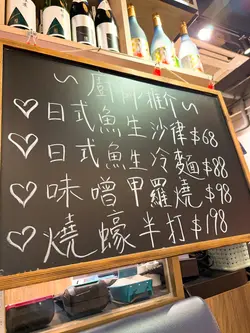 ~ 廚師推介 ~
♡ 日式魚生沙律 $68
♡ 日式魚生冷麵 $88
♡ 味噌甲羅燒 $98
♡ 燒蠔半打 $198